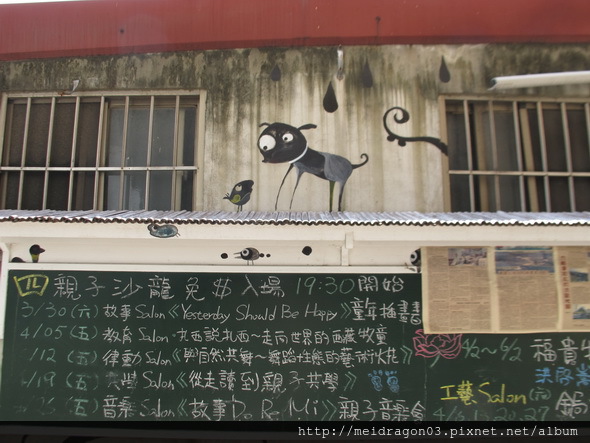 四 親子沙龍免$入場 19:30開始
3/30(六)故事Salon《Yesterday Should Be Happy》童年插畫
4/05(五)教育Salon-扎西說扎西~走向世界的西藏牧童
/12(五)律動Salon《與自然共舞~舞蹈性能的藝術火花》
/19(五)共學Salon《從走讀到親子共學》
(五)音樂Salon《故事Do Re Mi》親子音樂會
4/2~6/2 福貴
工藝Salon(六) 鍋
20,27
http://meidragon03.pixnet.net/album